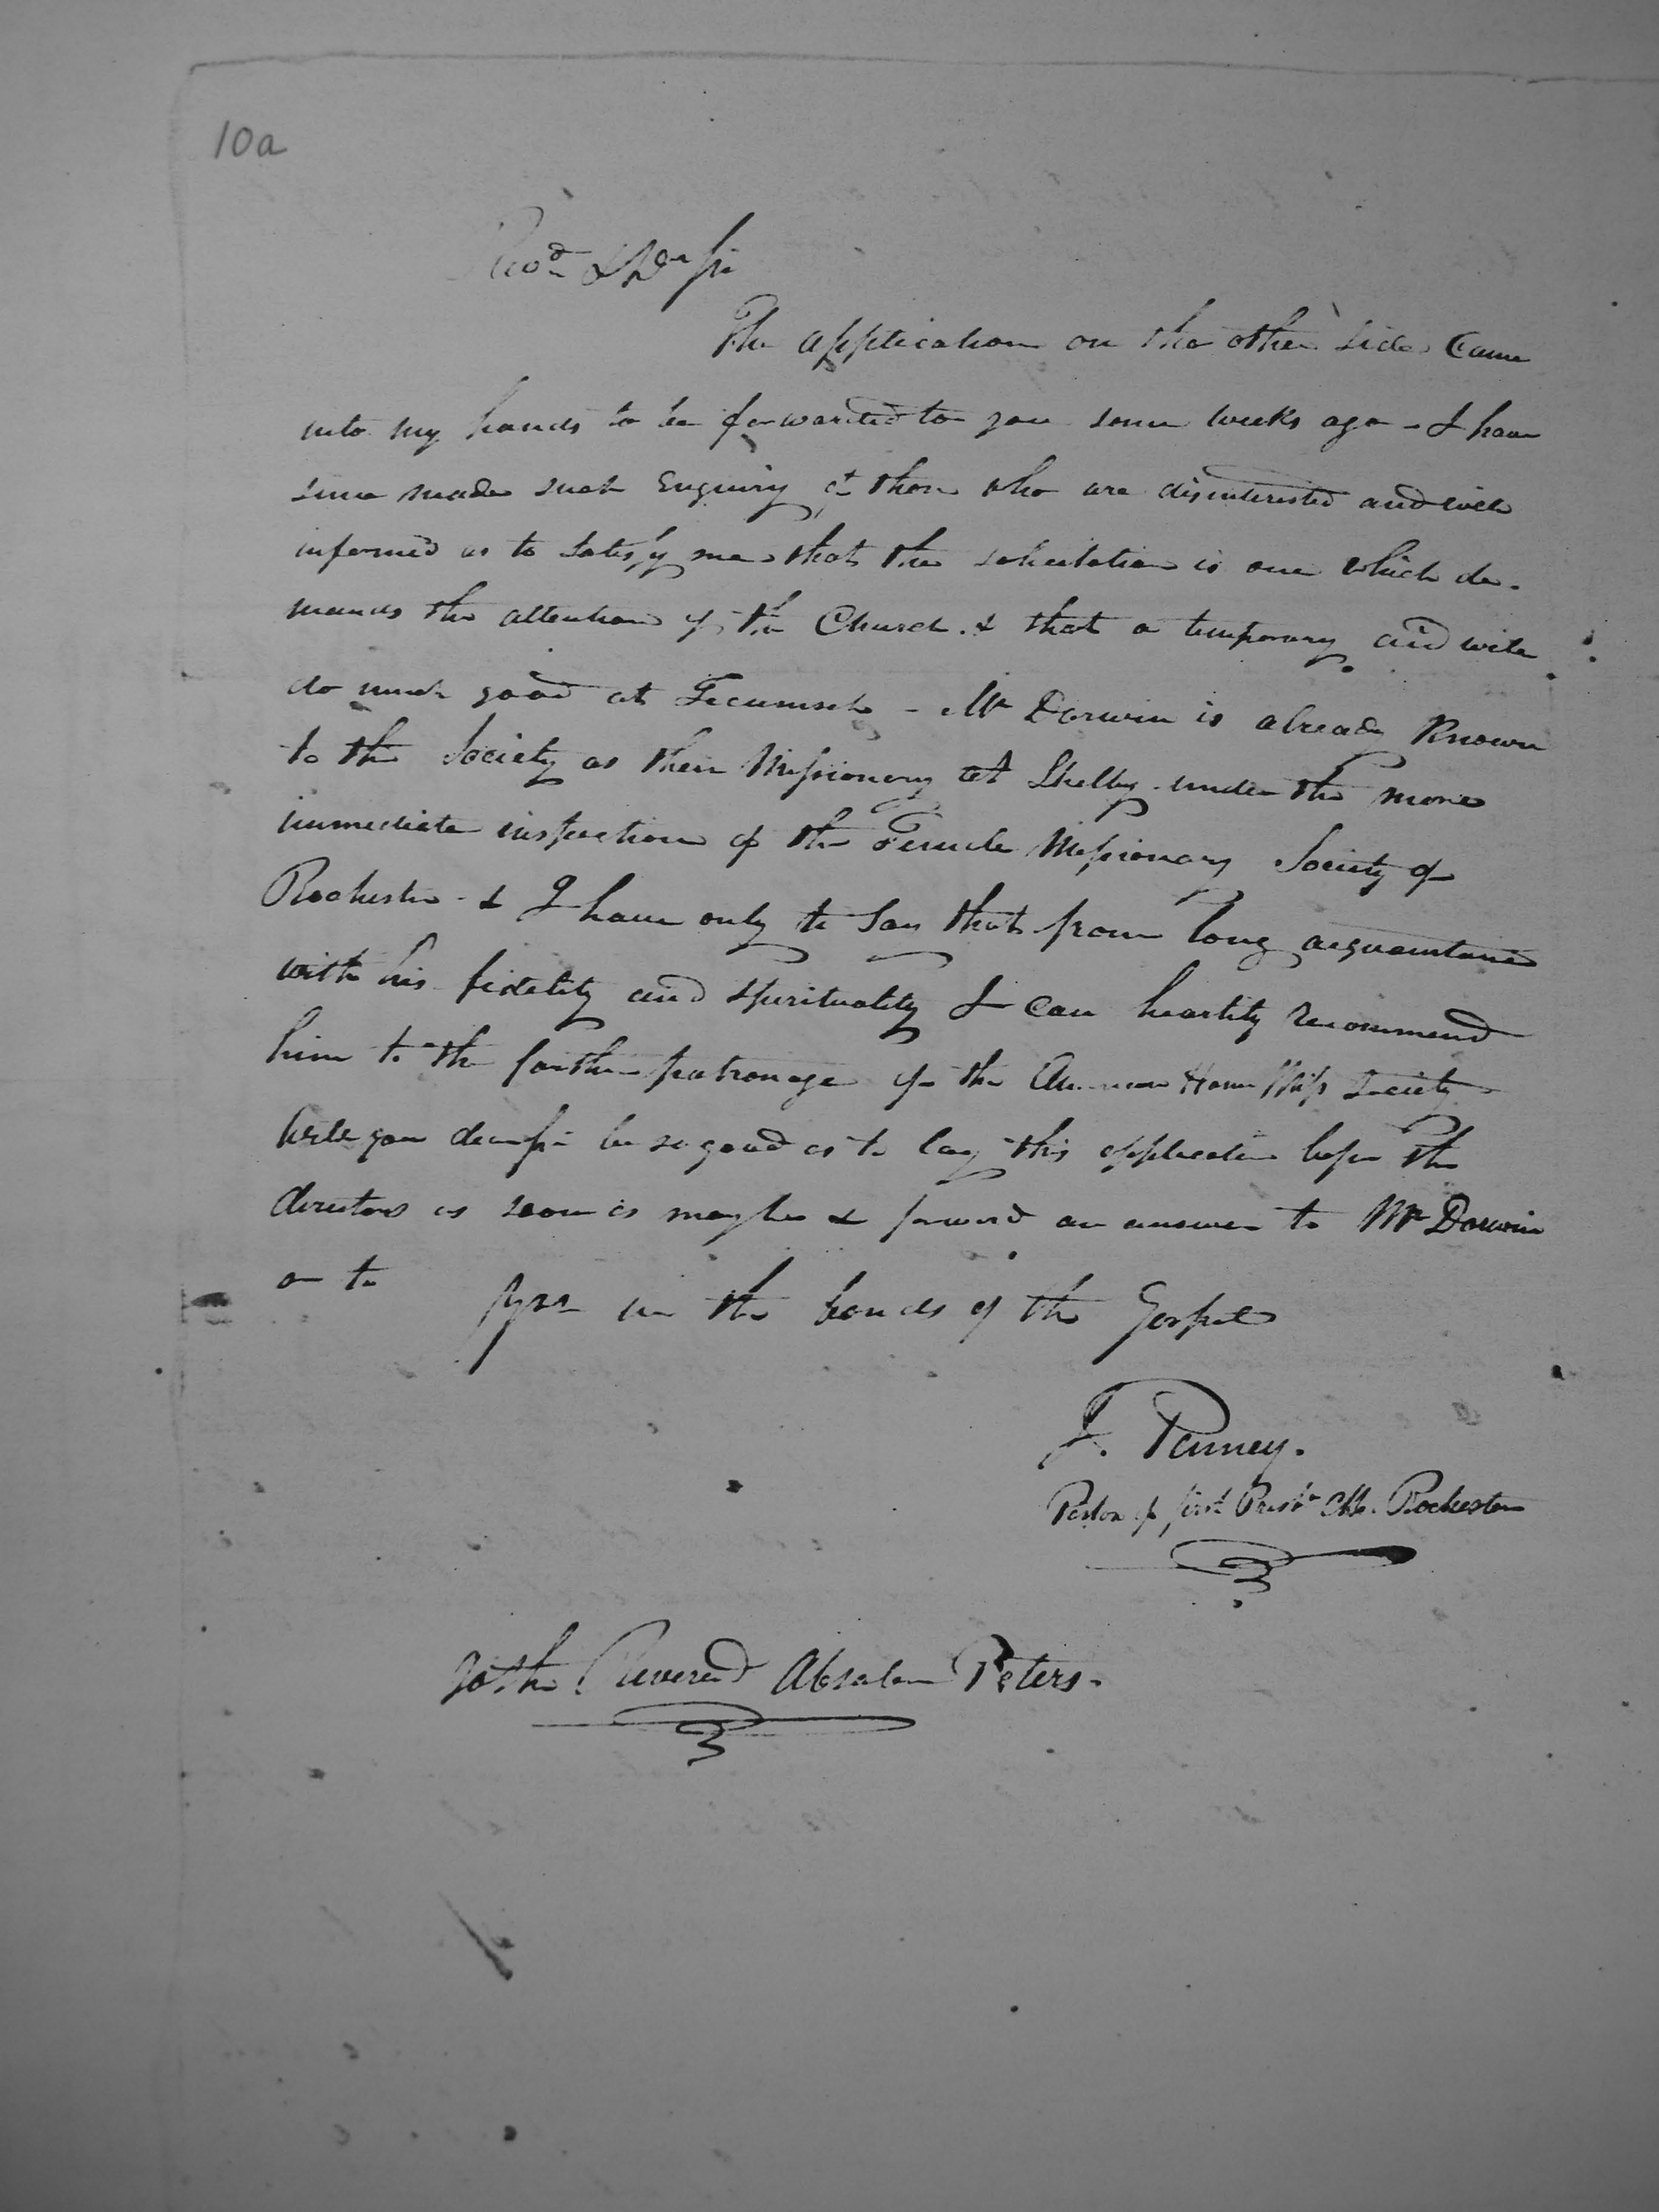 10a
Revd & Dr Sir
The application on the other side came
into my hands to be forwarded to you some weeks ago - I have
since made such Enquiry at those who are disinterested and well
informed as to satisfy me that the solicitation is one which de-
mands the attention of the Church. & that a temporary aid will
do much good at Tecumseh - Mr Darwin is already known
to the Society as their Missionary at Shelby under the more
immediate inspection of the Female Missionary Society of
Rochester - & I have only to say that from long acquaintance
with his fidelity and spirituality I can heartily recommend
him to the further patronage of the American Home Miss Society
Will you dear sir be so good as to lay this application before the
directors as soon as may be & forward an answer to Mr Darwin
or to
yrs in the bonds of the Gospel
J. Penney.
Pastor of first Presbn Chh. Rochester
To the Reverend Absalom Peters.